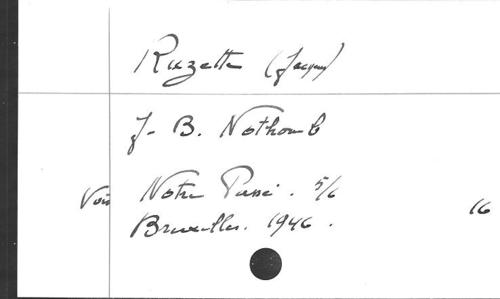 Ruzette (Jacques)
J-B. Nothomb
Voir Notre Passé. 5/6
Bruxelles. 1946. 16